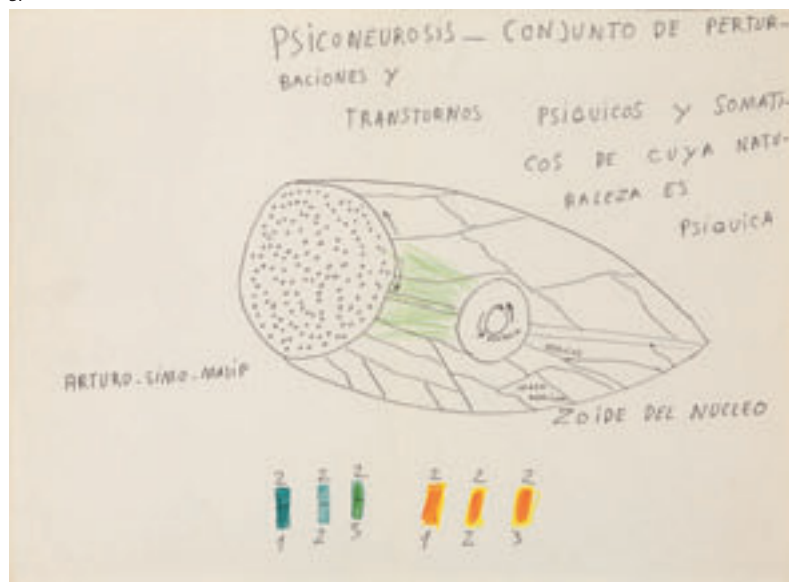 PSICONEUROSIS - CONJUNTO DE PERTUR-
BACIONES Y
TRANSTORNOS PSIQUICOS Y SOMATI-
COS DE CUYA NATU-
RALEZA ES
PSIQUICA
ARTURO-SIMO-MASIP
ZOIDE DEL NUCLEO
2 2 2 2 2 2
1 2 3 1 2 3